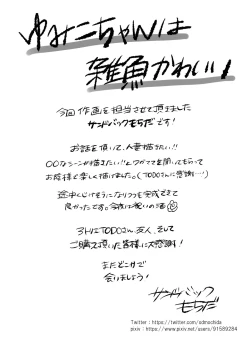 ゆみこちゃんは
雑魚かわいい
今回作画を担当させて頂きました
サンドバックもちだです!
お話を頂いて、人妻描きたい!!
〇〇なシーンが描きたい!!とワガママを聞いてもらって
お陰様で楽しく描けました。(TODOさんに感謝…!)
途中くじけそうになりつつも完成できて
良かったです。今夜は祝いの酒
3HにTODOさん、友人、そして
ご購入頂いた皆様に大感謝!
またどこかで
会いましょう!
サンドバック
もちだ
Twitter:https://twitter.com/sdmochida
pixiv:https://www.pixiv.net/users/91589284